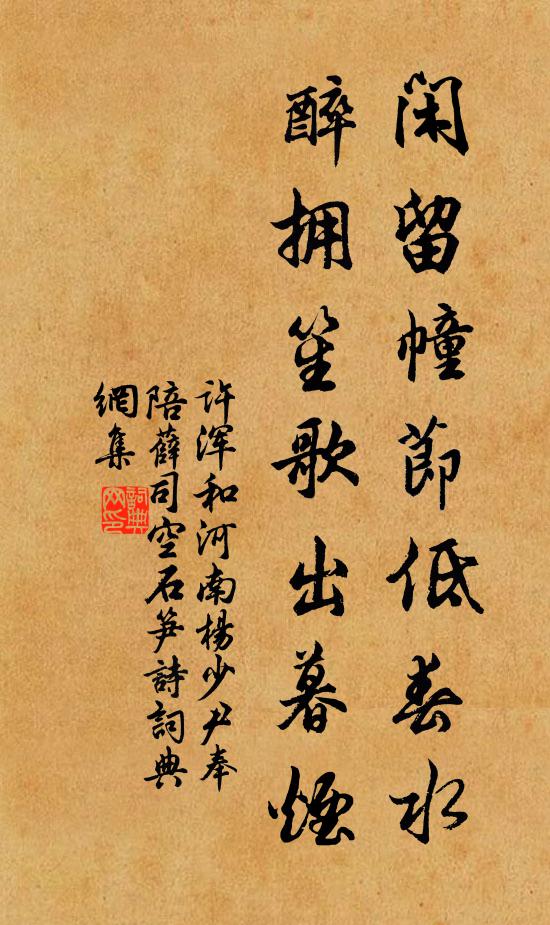 閑留幢節低春水
醉拥笙歌出暮煙
许浑和河南楊少尹奉
陪薛司空石笋詩詞典
網集
詞典
网印